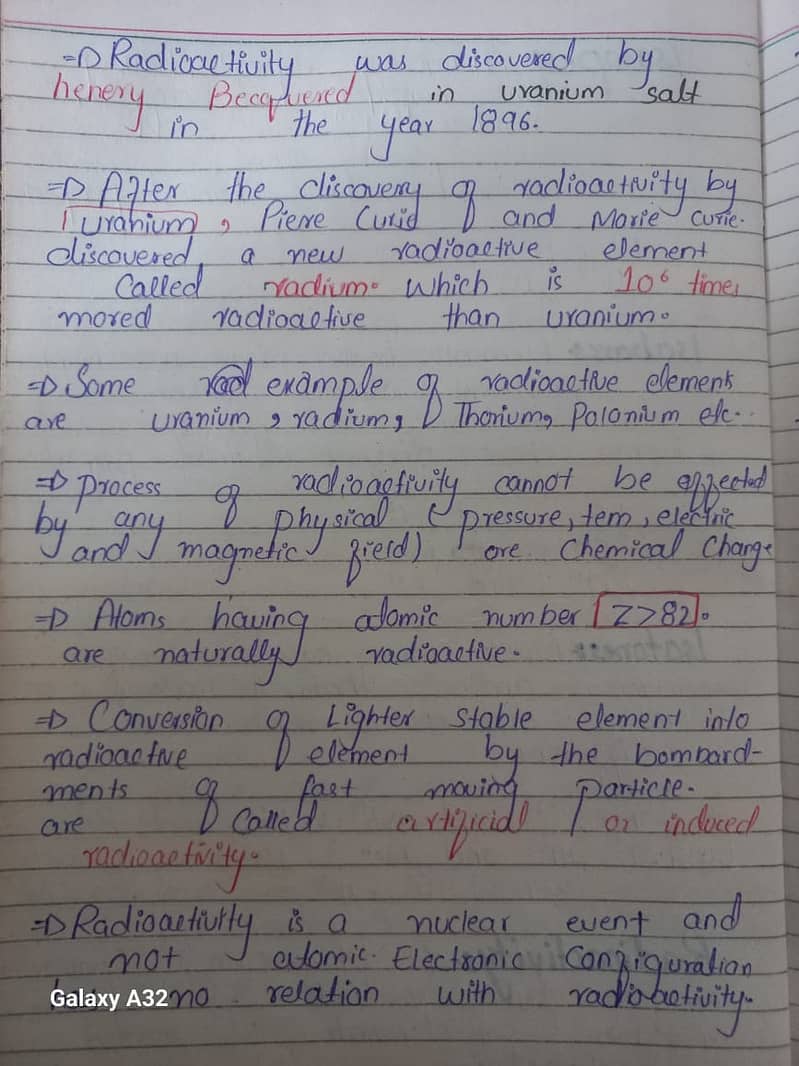 ⇒ Radioactivity was discovered by
henery Becquered in uranium salt
in the year 1896.
⇒ After the discovery of radioactivity by
uranium, Piere Curid and Marie curie.
discovered, a new radioactive element
Called radium. Which is 10⁶ times
mored radioactive than uranium.
⇒ Some example of radioactive element
are uranium, radium, Thorium, Polonium etc.
⇒ process of radioactivity cannot be effected
by any physical (pressure, tem, electric
and magnetic field) ore Chemical Change
⇒ Atoms having atomic number Z>82.
are naturally radioactive.
⇒ Conversion of Lighter stable element into
radioactive element by the bombard-
ments of fast moving particle.
are Called artificial or induced
radioactivity.
⇒ Radioactivity is a nuclear event and
not atomic. Electronic Configuration
no relation with radioactivity.
Galaxy A32